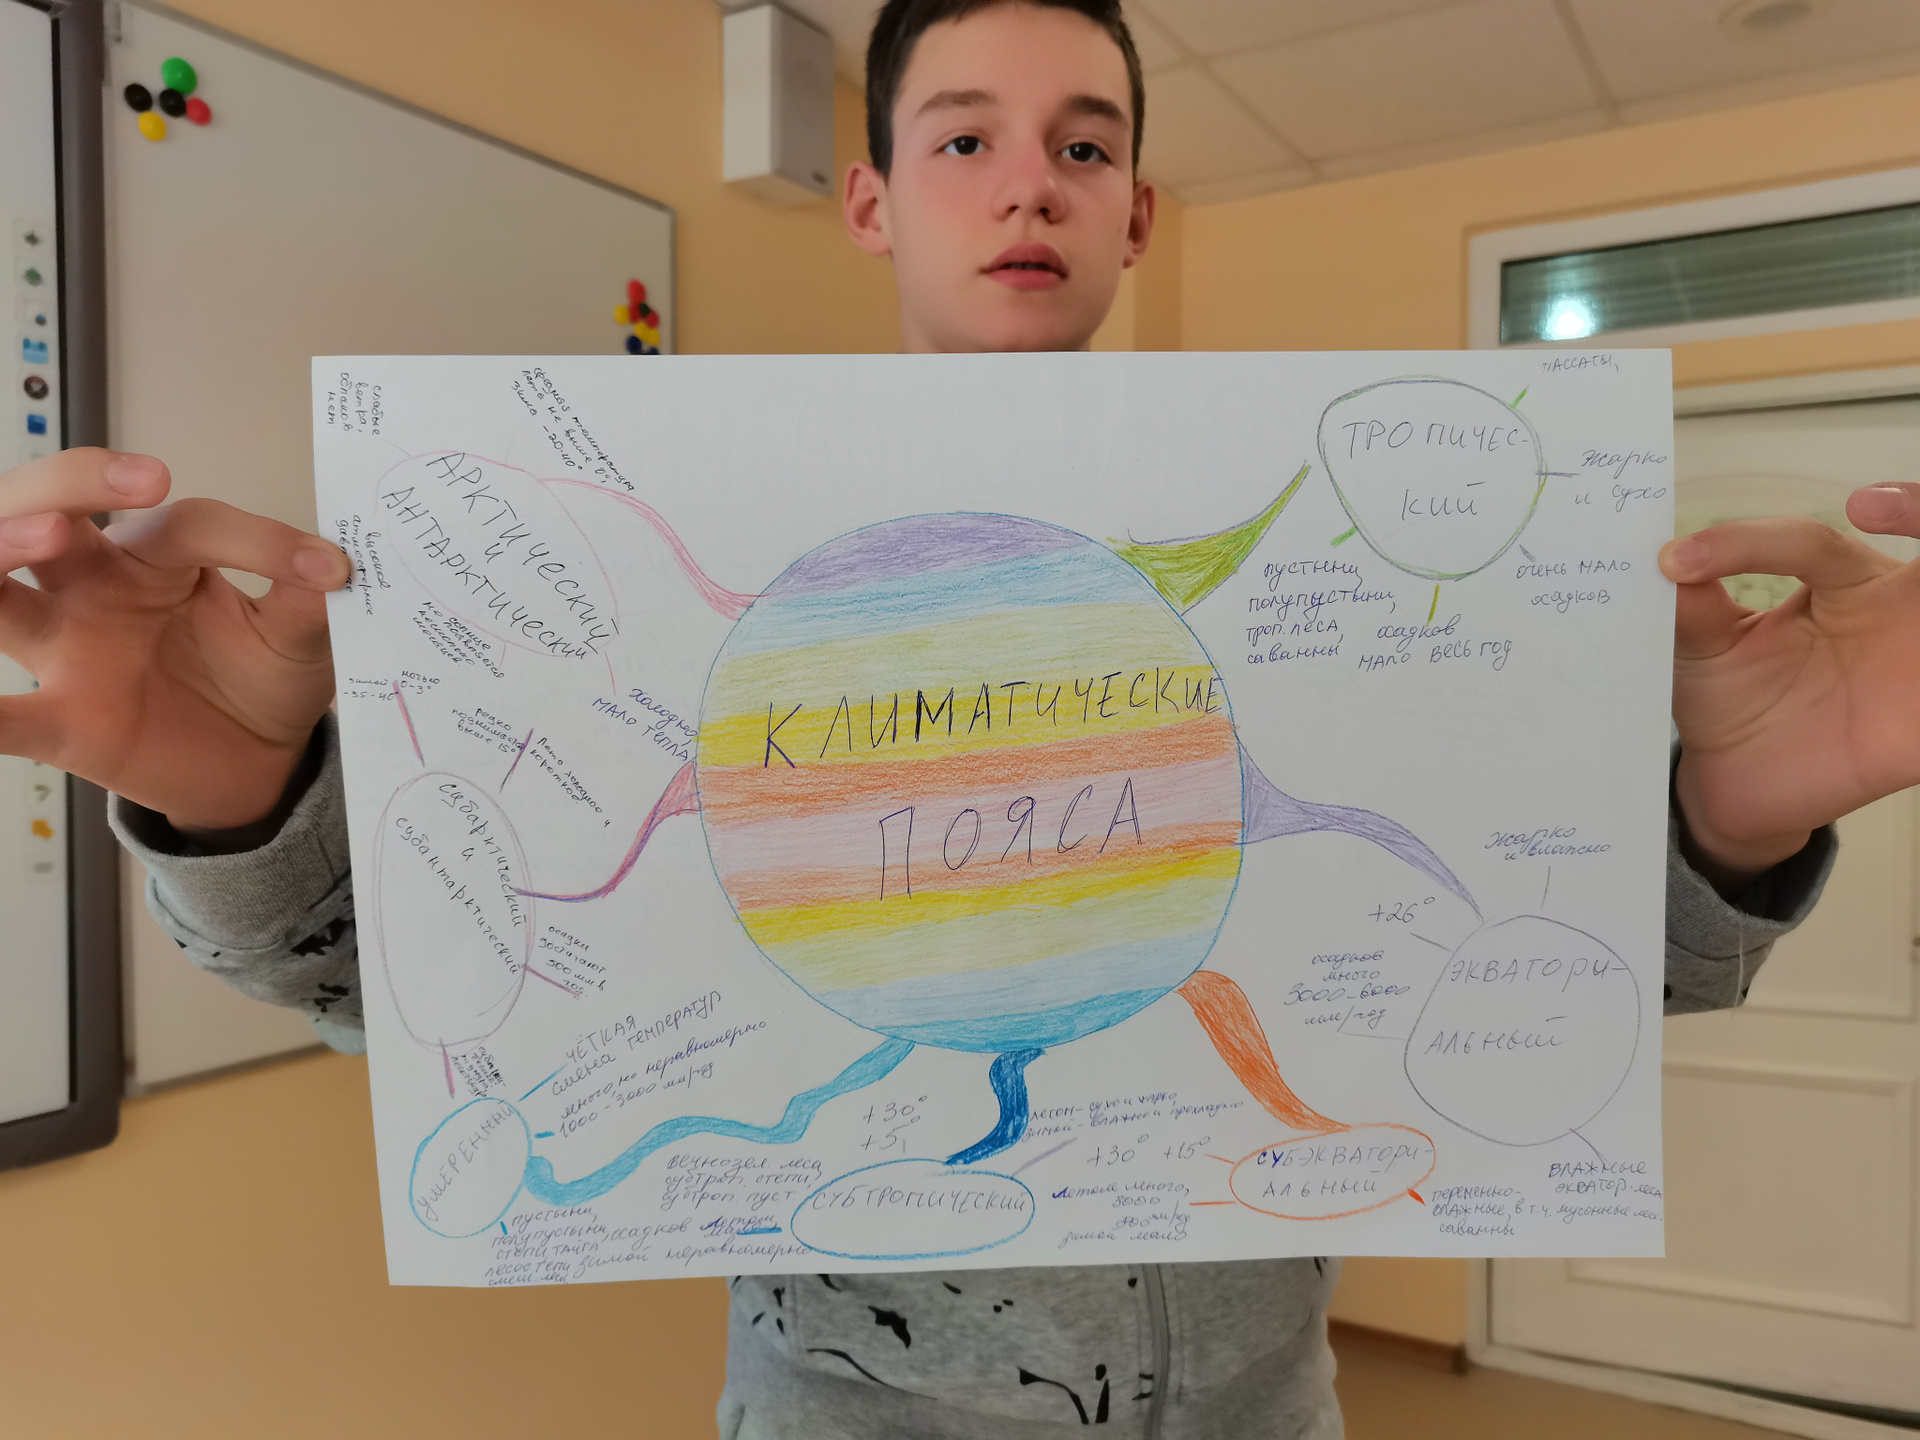 КЛИМАТИЧЕСКИЕ
ПОЯСА
слабые
ветра,
облаков
нет
средняя температура
лета не выше 0°,
зимы -20-40°
АРКТИЧЕСКИЙ
И
АНТАРКТИЧЕСКИЙ
высокое
атмосферное
солнце
появляется
несколько
месяцев
холодно,
мало тепла
зимой
-35-40°
ночью
0-3°
редко
поднимается
выше 15°
лето холодное и
короткое
субарктический
и
субантарктический
осадки
достигают
500 мм в
год.
УМЕРЕННЫЙ
ЧЁТКАЯ
смена температур
много, но неравномерно
1000-3000 мм/год
пустыни,
полупустыни,
степи, тайга
лесостепи
смеш. леса
СУБТРОПИЧЕСКИЙ
+30°
+5°
вечнозел. леса
субтроп. степи,
субтроп. пуст.
осадков летом
зимой неравномерно
летом - сухо и жарко,
зимой - влажно и прохладно
СУБЭКВАТОРИ-
АЛЬНЫЙ
+30° +15°
летом много,
зимой мало
переменно-
влажные, в т.ч. мусонные леса.
саванны
ЭКВАТОРИ-
АЛЬНЫЙ
жарко
и влажно
+26°
осадков
много
3000-6000
мм/год
ВЛАЖНЫЕ
ЭКВАТОР. леса
ТРОПИЧЕС-
КИЙ
ПАССАТЫ,
жарко
и сухо
очень мало
осадков
осадков
мало весь год
пустыни,
полупустыни,
троп. леса,
саванны